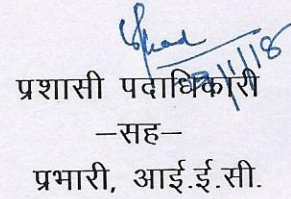 प्रशासी पदाधिकारी
–सह–
प्रभारी, आई.ई.सी.